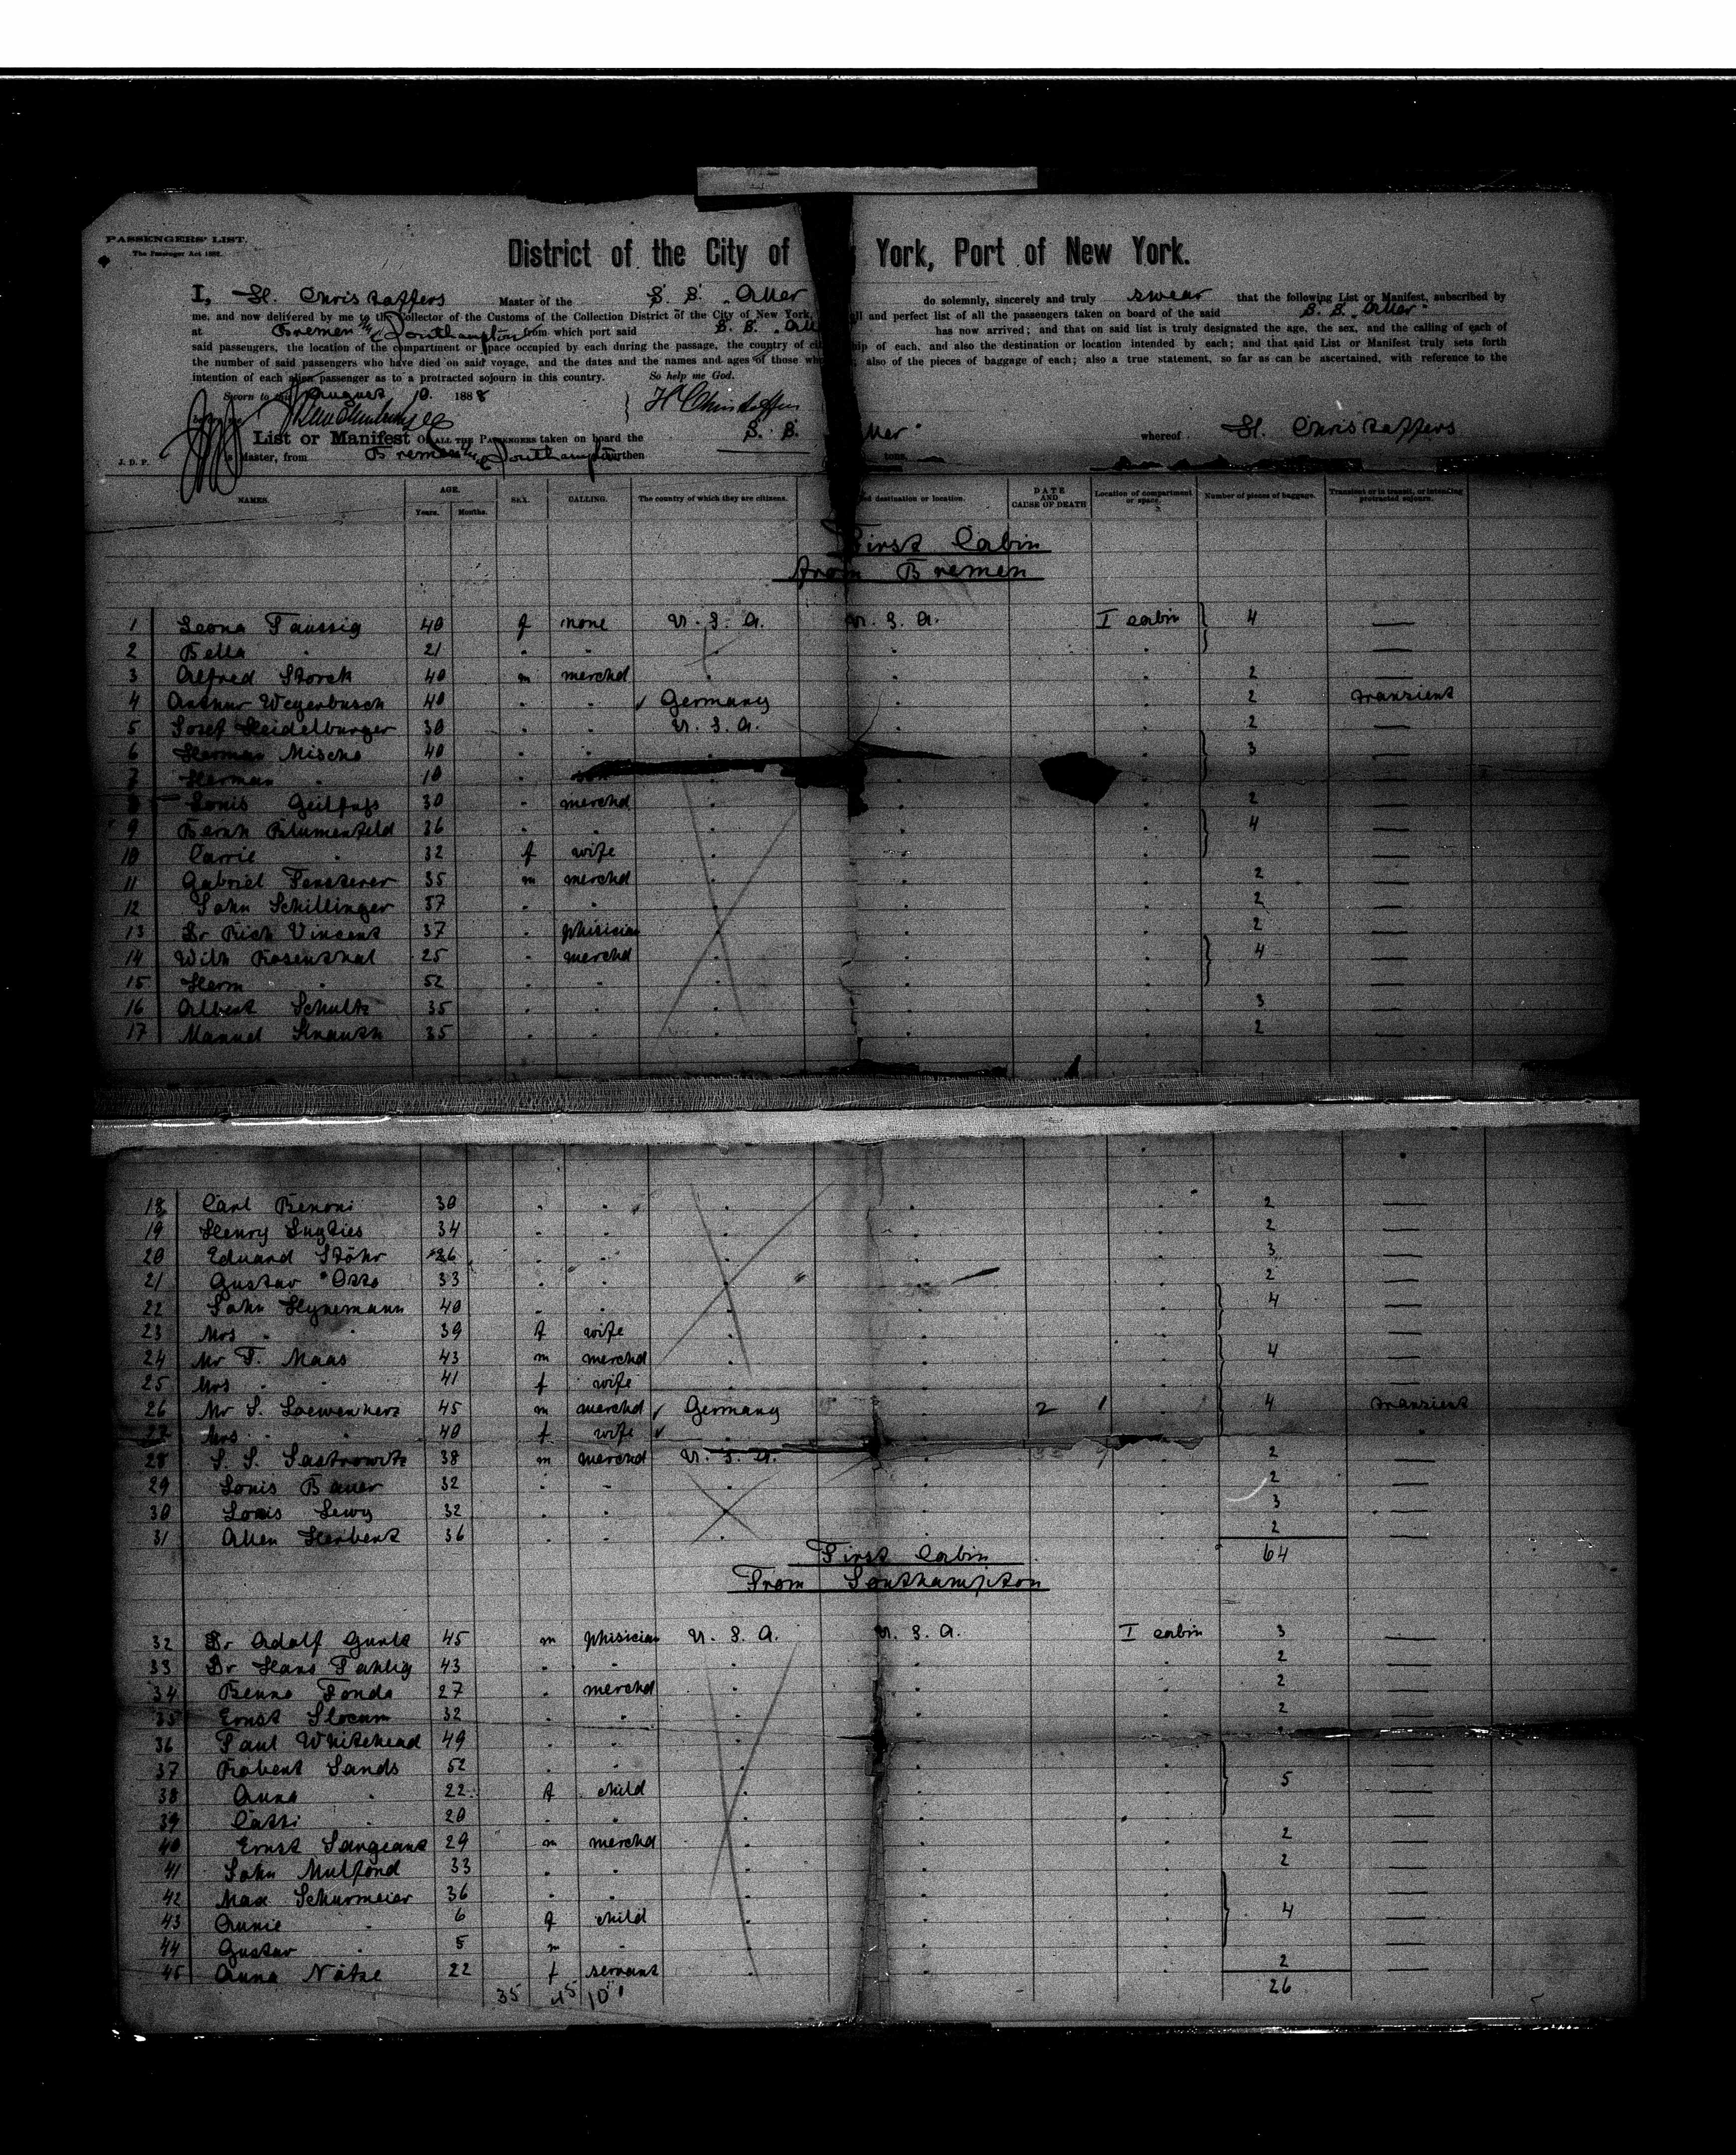 PASSENGERS' LIST.
The Passenger Act 1882.
District of the City of York, Port of New York.
I, H. Christoffers Master of the S. S. "Aller do solemnly, sincerely and truly swear that the following List or Manifest, subscribed by
me, and now delivered by me to the Collector of the Customs of the Collection District of the City of New York, ll and perfect list of all the passengers taken on board of the said S. S. "Aller"
at Bremen & Southampton from which port said S. S. "All has now arrived; and that on said list is truly designated the age, the sex, and the calling of each of
said passengers, the location of the compartment or space occupied by each during the passage, the country of citi ship of each, and also the destination or location intended by each; and that said List or Manifest truly sets forth
the number of said passengers who have died on said voyage, and the dates and the names and ages of those who ; also of the pieces of baggage of each; also a true statement, so far as can be ascertained, with reference to the
intention of each alien passenger as to a protracted sojourn in this country. So help me God.
Sworn to this August 10. 1888 H Christoffers
List or Manifest OF ALL THE PASSENGERS taken on board the S. S. ller" whereof H. Christoffers
J. D. P. is Master, from Bremen & Southampton burthen tons.
NAMES. AGE. Years. Months. SEX. CALLING. The country of which they are citizens. ed destination or location. DATE AND CAUSE OF DEATH Location of compartment or space. Number of pieces of baggage. Transient or in transit, or intending protracted sojourn.
First Cabin
from Bremen
1 Leona Taussig 40 f none U. S. A. U. S. A. I cabin 4 —
2 Bella " 21 " " " " —
3 Alfred Storch 40 m merchd " " 2 —
4 Arthur Weyerbusch 40 " " Germany " " 2 transient
5 Josef Heidelburger 30 " " U. S. A. " " 2 —
6 Herman Mischo 40 " " " " " 3 —
7 Herman " 10 " " " " —
8 Louis Geilfuss 30 " merchd " " " 2 —
9 Bernh Blumenfeld 36 " " " " " 4 —
10 Carrie " 32 f wife " " " —
11 Gabriel Fensterer 35 m merchd " " " 2 —
12 John Schillinger 57 " " " " " 2 —
13 Dr Rich Vincent 37 " phisician " " " 2 —
14 Wilh Rosenthal 25 " merchd " " " 4 —
15 Herm " 52 " " " " " —
16 Albert Schultz 35 " " " " " 3 —
17 Manuel Knauth 35 " " " " " 2 —
18 Carl Benoni 30 " " " " " 2 —
19 Henry Lugties 34 " " " " " 2 —
20 Eduard Stöhr 26 " " " " " 3 —
21 Gustav Otto 33 " " " " " 2 —
22 John Heynemann 40 " " " " " 4 —
23 Mrs " 39 f wife " " " —
24 Mr F. Maas 43 m merchd " " " 4 —
25 Mrs " 41 f wife " " " —
26 Mr S. Loewenherz 45 m merchd Germany " 2 1 " 4 transient
27 Mrs " 40 f wife "
28 S. S. Sastrowitz 38 m merchd U. S. A. " " 2 —
29 Louis Bauer 32 " " " " " 2 —
30 Louis Lewy 32 " " " " " 3 —
31 Allen Herbert 36 " " " " " 2 —
64
First Cabin
From Southampton
32 Dr Adolf Guntz 45 m phisician U. S. A. U. S. A. I cabin 3 —
33 Dr Hans Pahlig 43 " " " " " 2 —
34 Benno Fonda 27 " merchd " " " 2 —
35 Ernst Slocum 32 " " " " " 2 —
36 Paul Whitehead 49 " " " " "
37 Robert Sands 52 " " " " " 5 —
38 Anna " 22 f child " " " —
39 Catti " 20 " " " " " —
40 Ernst Sargeant 29 m merchd " " " 2 —
41 John Mulford 33 " " " " " 2 —
42 Max Schurmeier 36 " " " " " 4 —
43 Annie " 6 f child " " " —
44 Gustav " 5 m " " " " —
45 Anna Nötze 22 f servant " " " 2 —
35 45 10 26